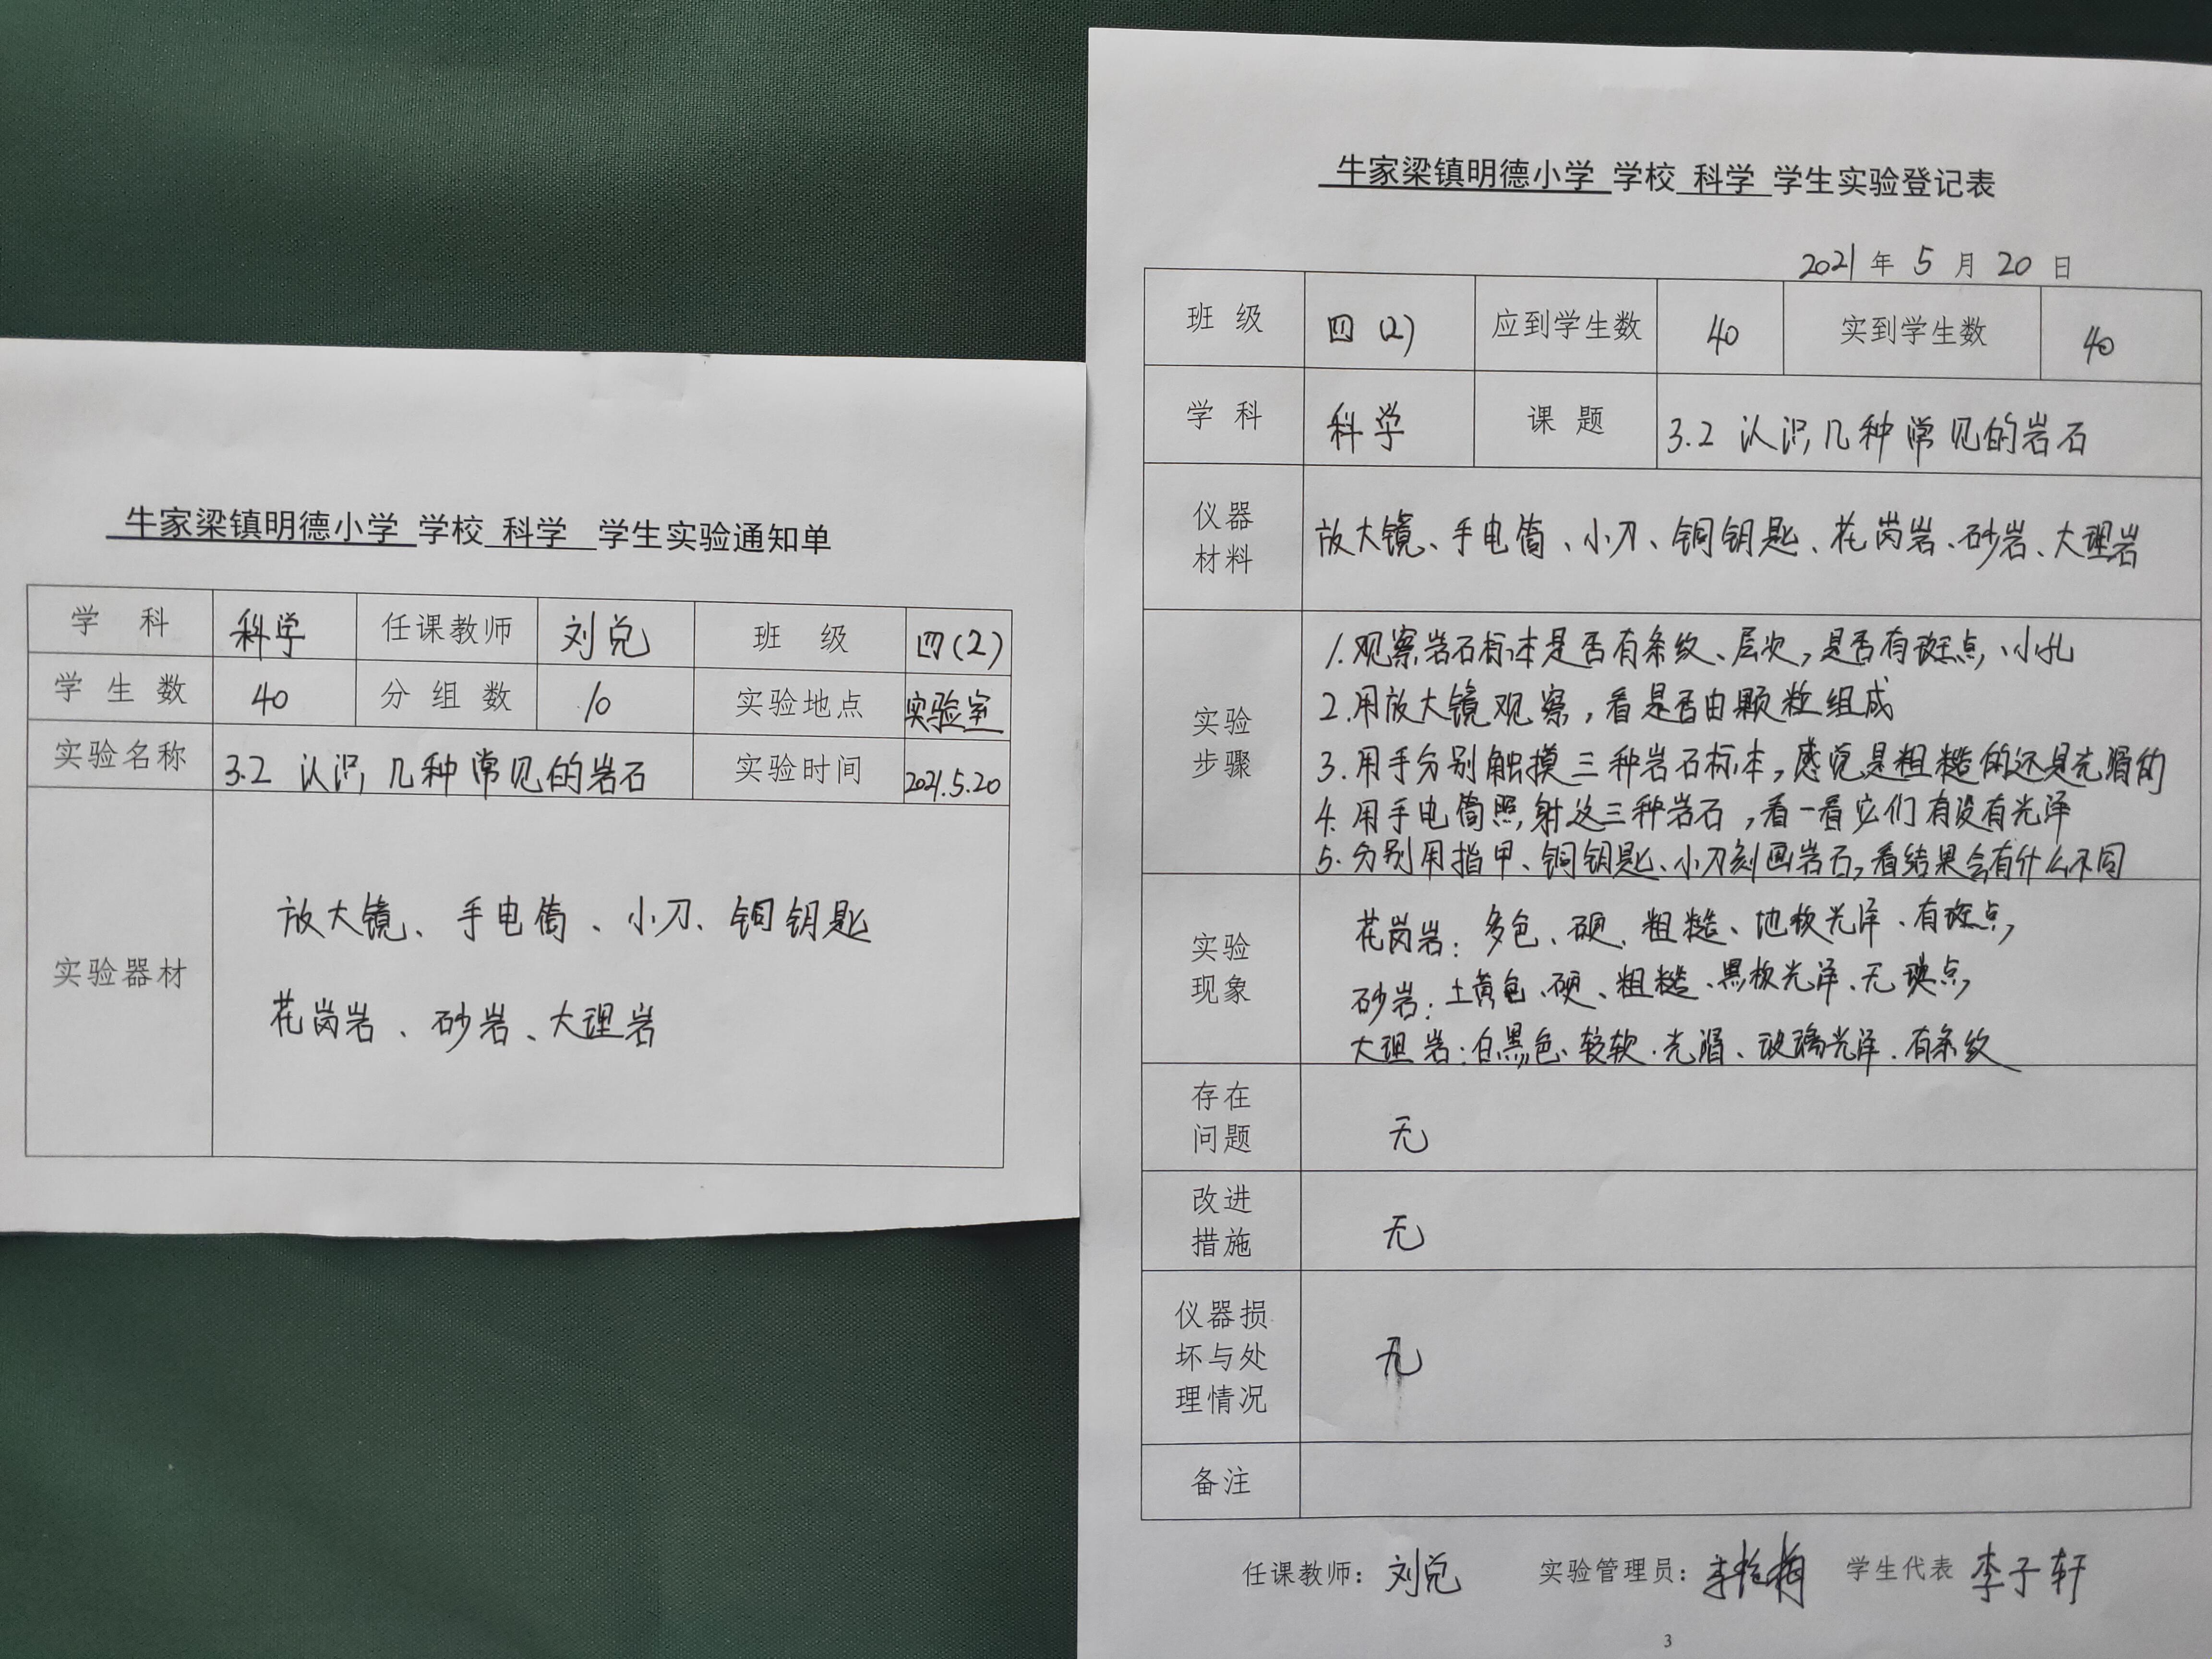 牛家梁镇明德小学 学校 科学 学生实验通知单
学 科 科学 任课教师 刘兑 班 级 四(2)
学 生 数 40 分 组 数 10 实验地点 实验室
实验名称 3.2 认识几种常见的岩石 实验时间 2021.5.20
实验器材
放大镜、手电筒、小刀、铜钥匙
花岗岩、砂岩、大理岩
牛家梁镇明德小学 学校 科学 学生实验登记表
2021 年 5 月 20 日
班 级 四(2) 应到学生数 40 实到学生数 40
学 科 科学 课 题 3.2 认识几种常见的岩石
仪器
材料
放大镜、手电筒、小刀、铜钥匙、花岗岩、砂岩、大理岩
实验
步骤
1.观察岩石标本是否有条纹、层次,是否有斑点、小孔
2.用放大镜观察,看是否由颗粒组成
3.用手分别触摸三种岩石标本,感觉是粗糙的还是光滑的
4.用手电筒照射这三种岩石,看一看它们有没有光泽
5.分别用指甲、铜钥匙、小刀刻画岩石,看结果会有什么不同
实验
现象
花岗岩:多色、硬、粗糙、地板光泽、有斑点,
砂岩:土黄色、硬、粗糙、黑板光泽、无斑点,
大理岩:白黑色、较软、光滑、玻璃光泽、有条纹
存在
问题
无
改进
措施
无
仪器损
坏与处
理情况
无
备注
任课教师:刘兑 实验管理员: 学生代表 李子轩
3